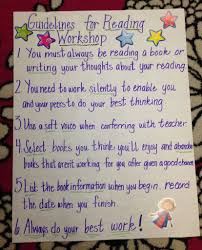 Guidelines for Reading
Workshop
1. You must always be reading a book or
writing your thoughts about your reading.
2. You need to work silently to enable you
and your peers to do your best thinking.
3. Use a soft voice when conferring with teacher
4. Select books you think you'll enjoy and abandon
books that aren't working for you after given a good chance.
5. List the book information when you begin, record
the date when you finish.
6. Always do your best work!